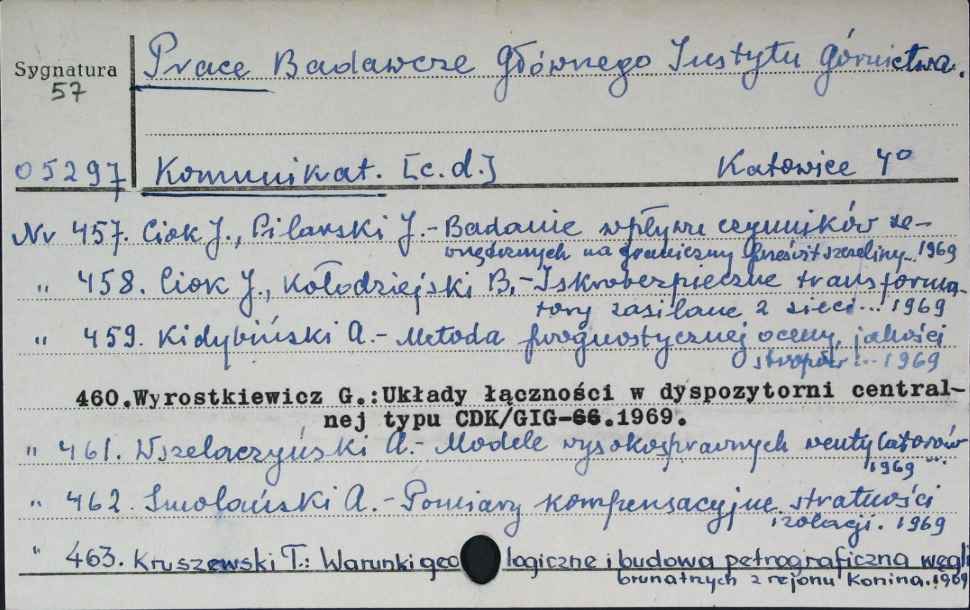 Prace Badawcze Głównego Instytutu Górnictwa.
Sygnatura
57
05297 Komunikat. [c.d.] Katowice 4°
Nr 457. Ciok J., Pilarski J.- Badanie wpływu czynników ze-
wnętrznych na graniczny prześwit szczeliny... 1969
" 458. Ciok J., Kołodziejski B.- Iskrobezpieczne transforma-
tory zasilane z sieci... 1969
" 459. Kidybiński A.- Metoda prognostycznej oceny jakości
stropów... 1969
460.Wyrostkiewicz G.:Układy łączności w dyspozytorni central-
nej typu CDK/GIG-66.1969.
" 461. Wszelaczyński A.- Modele wysokosprawnych wentylatorów
1969 ...
" 462. Smolański A.- Pomiary kompensacyjne stratności
izolacji. 1969
" 463. Kruszewski T.: Warunki geologiczne i budowa petrograficzna węgli
brunatnych z rejonu Konina. 1969